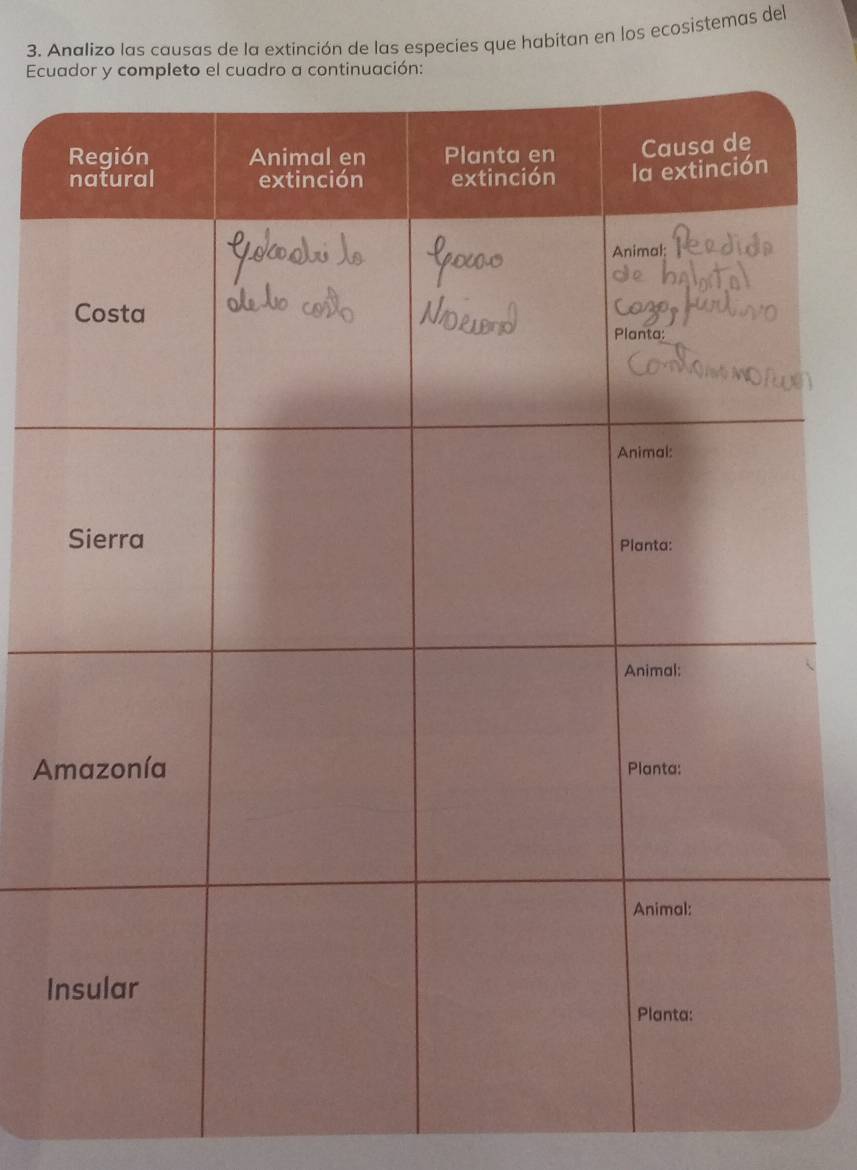 3. Analizo las causas de la extinción de las especies que habitan en los ecosistemas del
Ecuador y completo el cuadro a continuación:
Región
natural
Animal en
extinción
Planta en
extinción
Causa de
la extinción
Costa
Cocodrilo
de la costa
Cacao
Nacional
Animal: Perdida
de habitat
caza, furtiva
Planta:
Contaminación
Sierra
Animal:
Planta:
Amazonía
Animal:
Planta:
Insular
Animal:
Planta: